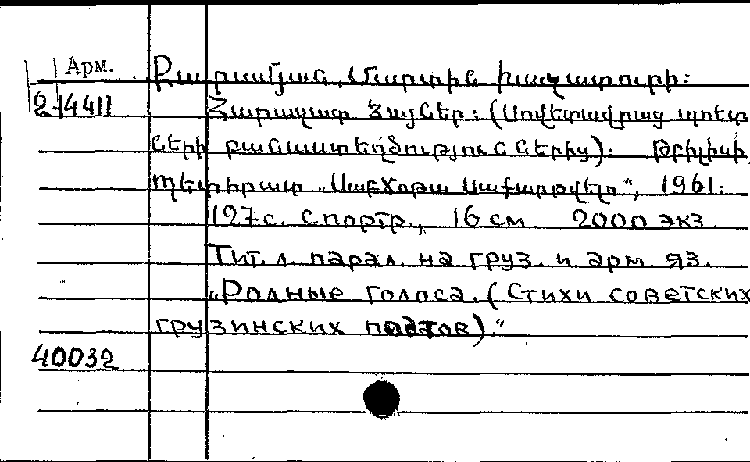 Арм.
Քարամյան, Մարտին Խաչատուրի:
2-4411
Հարազատ Ձայներ: (Սովետավրաց պոետ
ների բանաստեղծություններից): Թբիլիսի,
Պետհրատ „Սաբճոթա Սաքարթվելո“, 1961.
127 с. с портр., 16 см 2000 экз.
Тит. л. парал. на груз. и арм. яз.
„Родные голоса. (Стихи советских
грузинских поэтов).“
40032